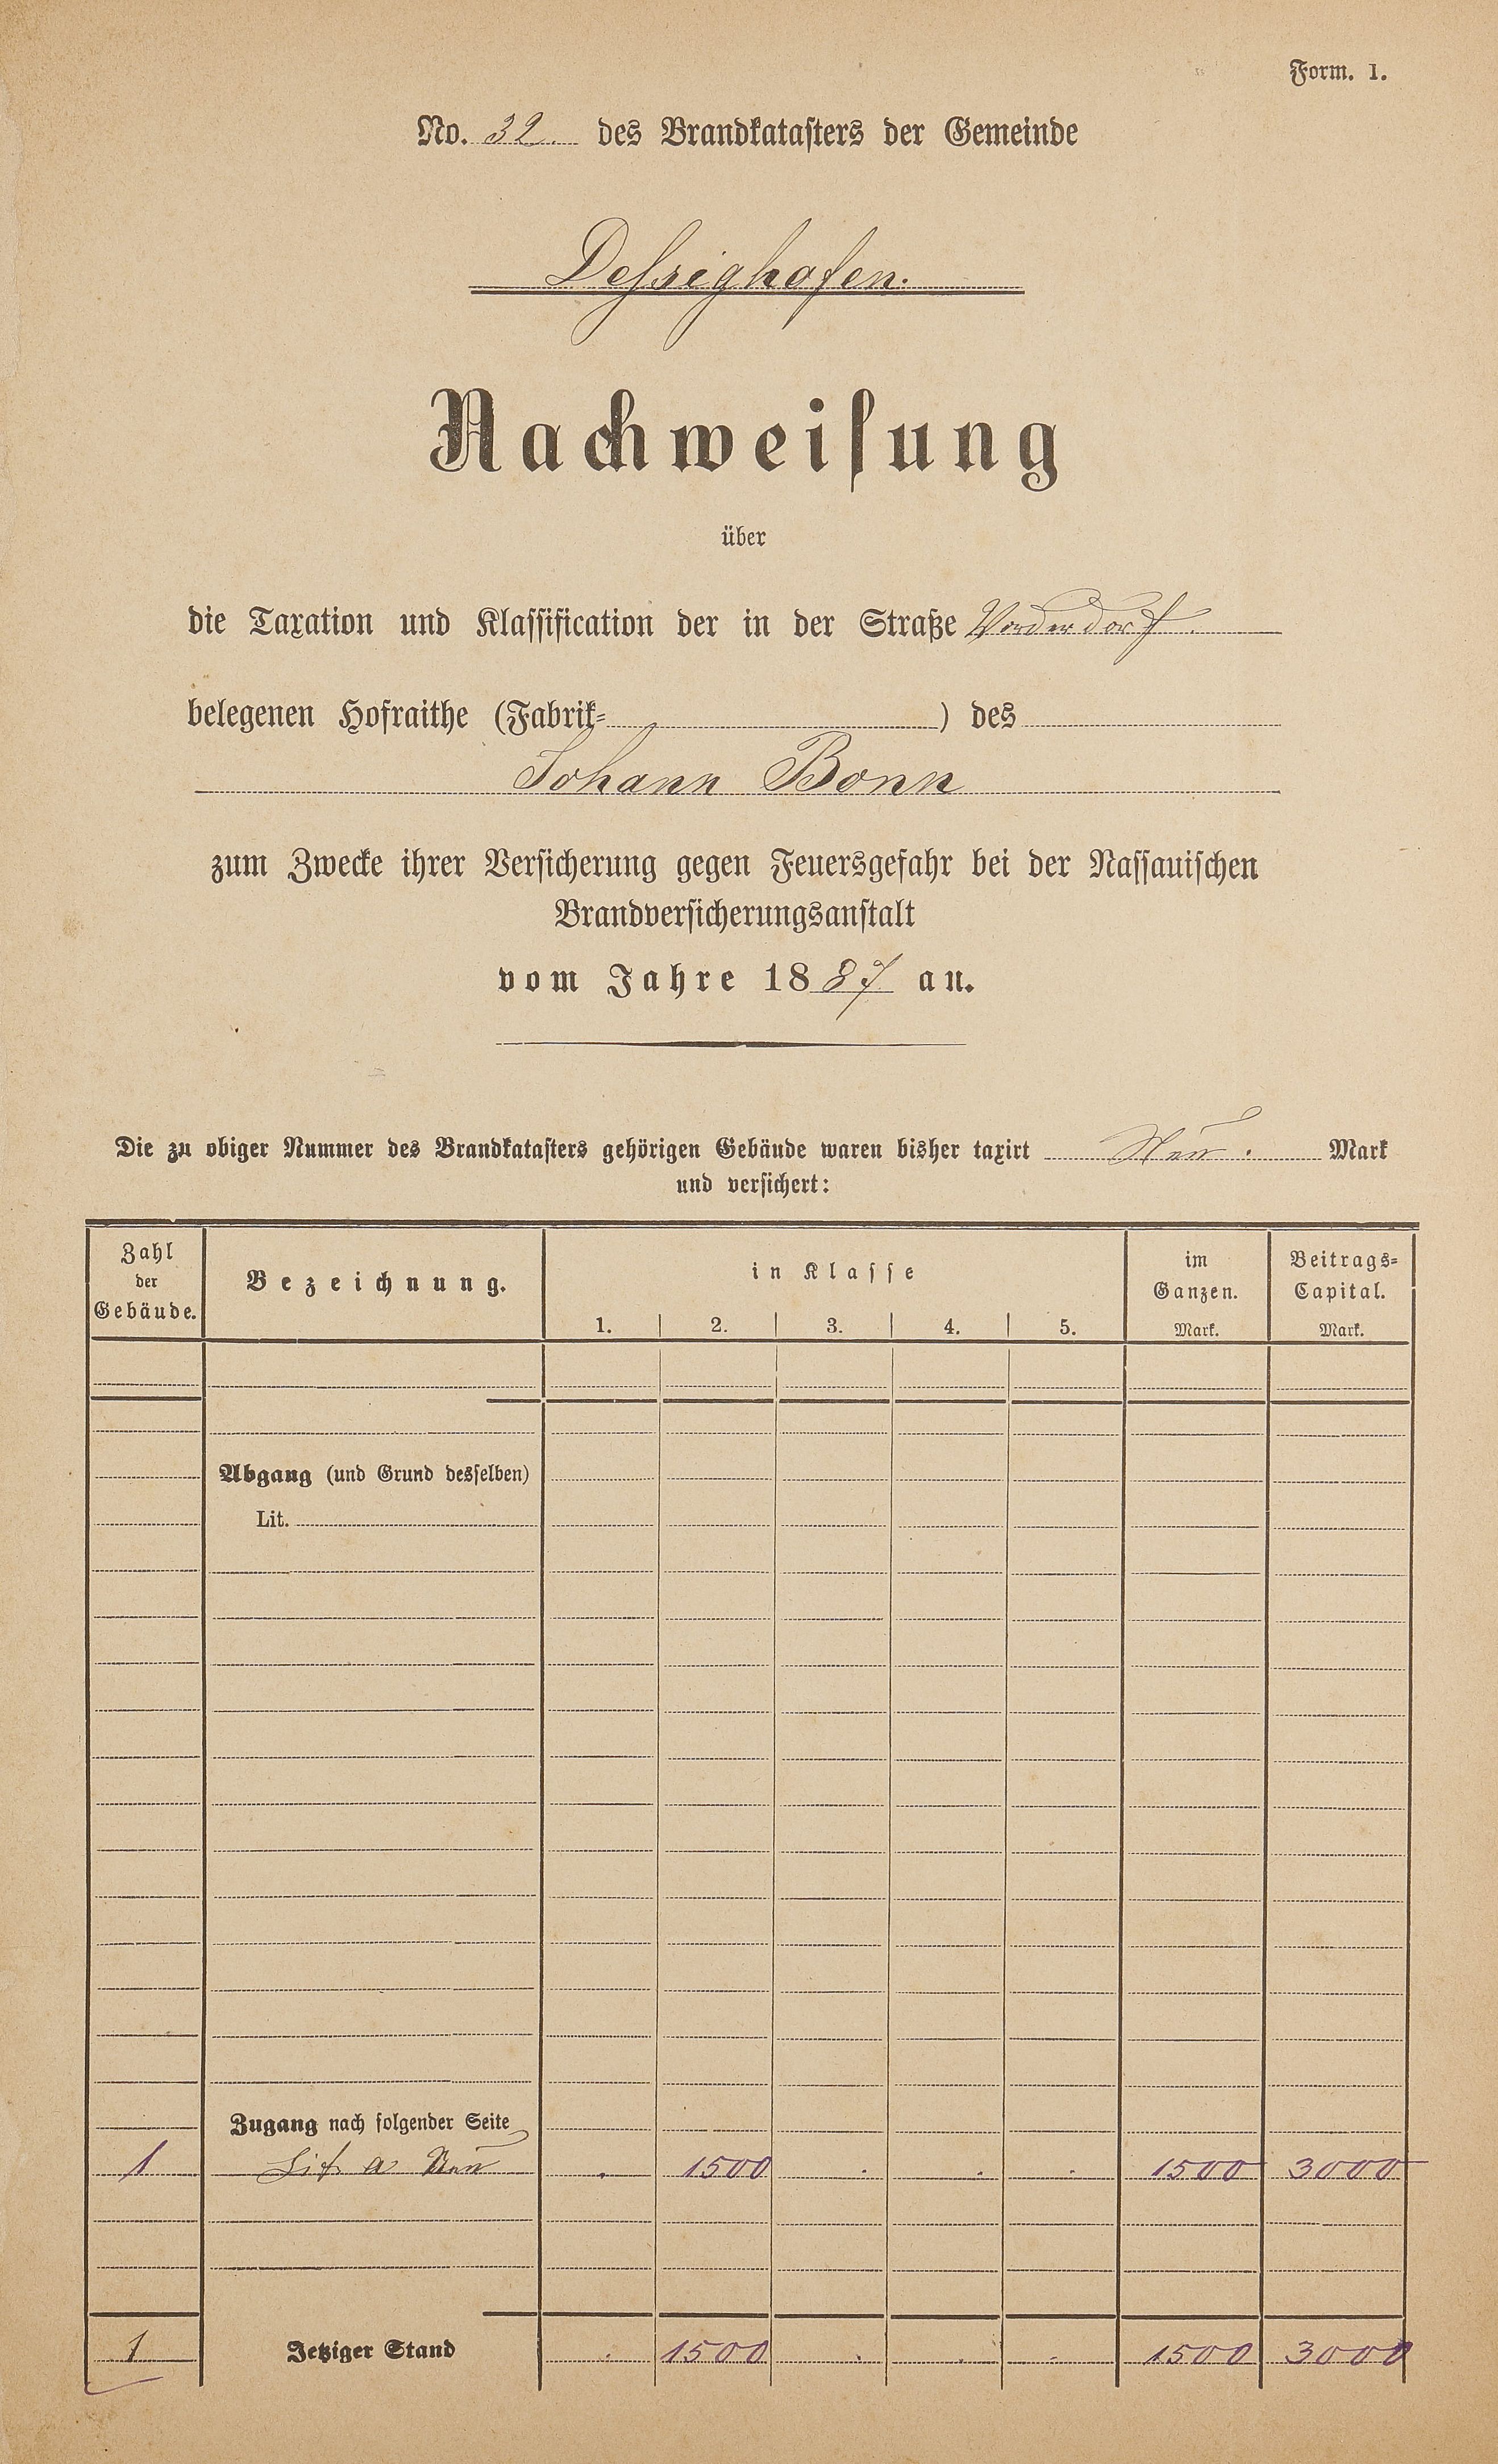 Form. 1.
No. 32. des Brandkatasters der Gemeinde
Dessighofen.
Nachweisung
über
die Taxation und Klassification der in der Straße Vorderdorf.
belegenen Hofraithe (Fabrik- ) des
Johann Bonn
zum Zwecke ihrer Versicherung gegen Feuersgefahr bei der Nassauischen
Brandversicherungsanstalt
vom Jahre 1887 an.
Die zu obiger Nummer des Brandkatasters gehörigen Gebäude waren bisher taxirt Neu. Mark
und versichert:
Zahl der Gebäude. Bezeichnung. in Klasse 1. 2. 3. 4. 5. im Ganzen. Mark. Beitrags-Capital. Mark.
Abgang (und Grund desselben)
Lit.
Zugang nach folgender Seite
1 Lit. a Neu . 1500 . . . 1500 3000
1 Jetziger Stand . 1500 . . . 1500 3000